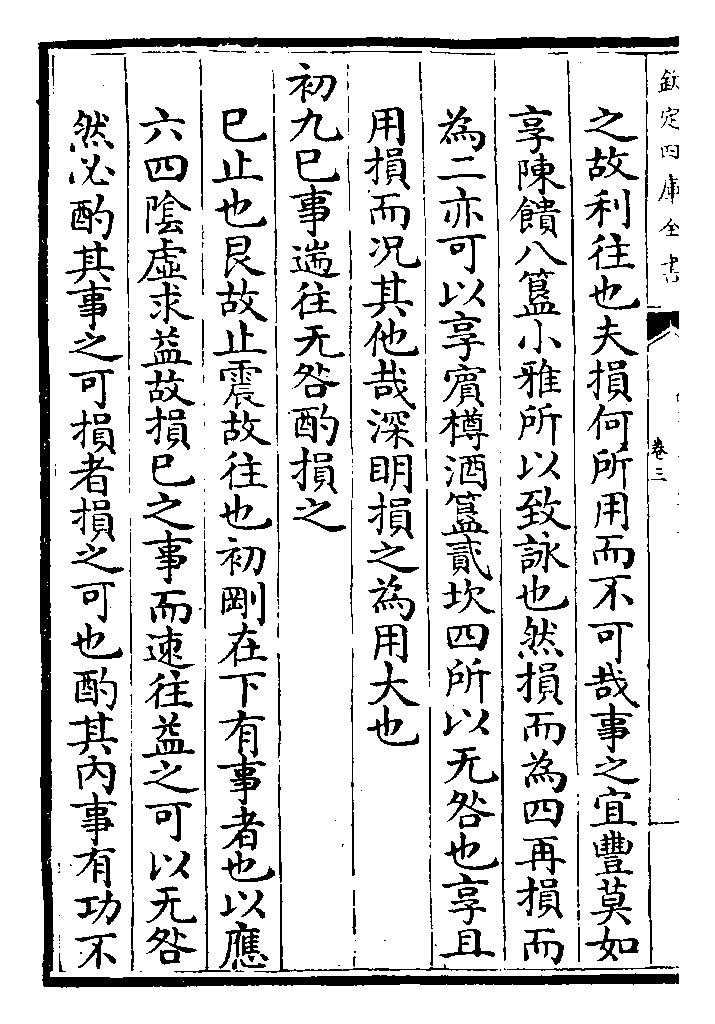 欽定四庫全書
卷三
之故利往也夫損何所用而不可哉事之宜豐莫如
享陳饋八簋小雅所以致詠也然損而為四再損而
為二亦可以享賓樽酒簋貳坎四所以无咎也享且
用損而况其他哉深明損之為用大也
初九巳事遄往无咎酌損之
巳止也艮故止震故往也初剛在下有事者也以應
六四陰虛求益故損巳之事而速往益之可以无咎
然必酌其事之可損者損之可也酌其內事有功不